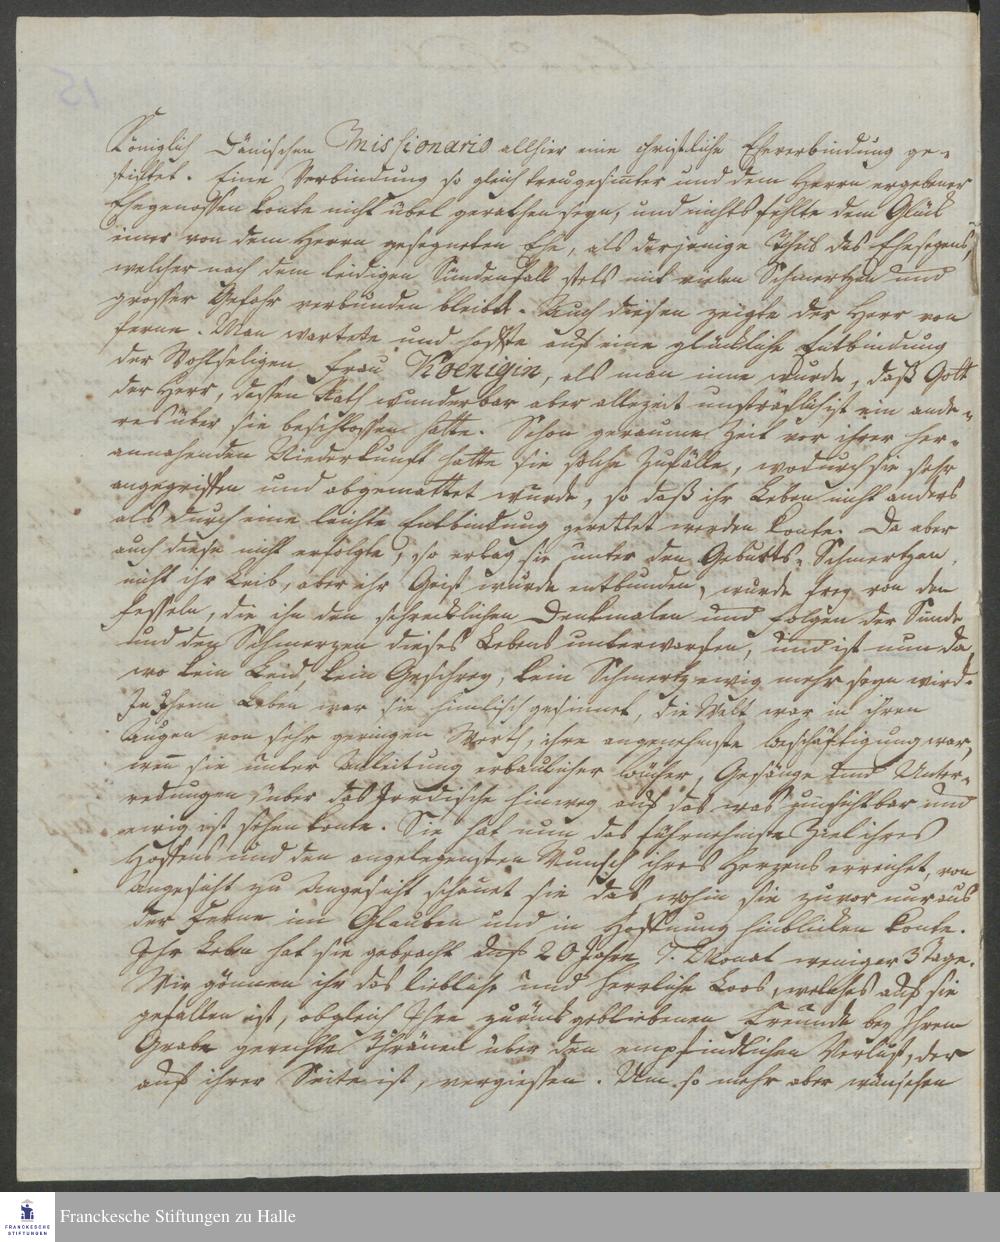 Königlich Dänischen Missionario allhier eine christliche Eheverbindung ge=
stifftet. Eine Verbindung so gleich treugesinter und dem Herrn ergebener
Ehegenossen konte nicht übel gerathen seyn, und nichts fehlte dem Glück
einer von dem Herrn gesegneten Ehe, als derjenige Theil des Ehesegens,
welcher nach dem leidigen Sündenfall stets mit vielen Schmertzen und
grosser Gefahr verbunden bleibt. Auch diesen zeigte der Herr von
ferne. Man wartete und hoffte auf eine glückliche Entbindung
der Wohlseligen Frau Koenigin, als man inne wurde, daß Gott
der Herr, dessen Rath wunderbar aber allezeit unsträflich ist ein ande=
res über sie beschlossen hatte. Schon geraume Zeit vor ihrer her=
annahenden Niederkunft hatte sie solche Zufälle, wodurch sie sehr
angegriffen und abgemattet wurde, so daß ihr Leben nicht anders
als durch eine leichte Entbindung gerettet werden konte. Da aber
auch diese nicht erfolgte, so erlag sie unter den Geburts=Schmertzen,
nicht ihr Leib, aber ihr Geist wurde entbunden, wurde frey von den
Fesseln, die ihn den schrecklichen Denkmalen und Folgen der Sünde
und den Schmerzen dieses Lebens unterwarfen, und ist nun da,
wo kein Leid, kein Geschrey, kein Schmertz ewig mehr seyn wird.
In Ihrem Leben war sie himlisch gesinnet, die Welt war in ihren
Augen von sehr geringen Werth, ihre angenehmste Beschäftigung war,
wenn sie unter Anleitung erbaulicher Bücher, Gesänge und Unter=
redungen, über das Irrdische hinweg auf das was unsichtbar und
ewig ist, sehen konte. Sie hat nun das führnehmste Ziel ihres
Hoffens und den angelegensten Wunsch ihres Herzens erreichet, von
Angesicht zu Angesicht schauet sie das wohin sie zuvor nur aus
der Ferne im Glauben und in Hoffnung hinblicken konte.
Ihr Leben hat sie gebracht auf 20 Jahre 7. Monat weniger 3 Tage.
Wir gönnen ihr das liebliche und herrliche Loos, welches auf sie
gefallen ist, obgleich Ihre zurück gebliebenen Freunde bey Ihrem
Grabe gerechte Thränen über den empfindlichen Verlust, der
auf ihrer Seite ist, vergiessen. Um so mehr aber wünschen
Franckesche Stiftungen zu Halle
FRANCKESCHE
STIFTUNGEN